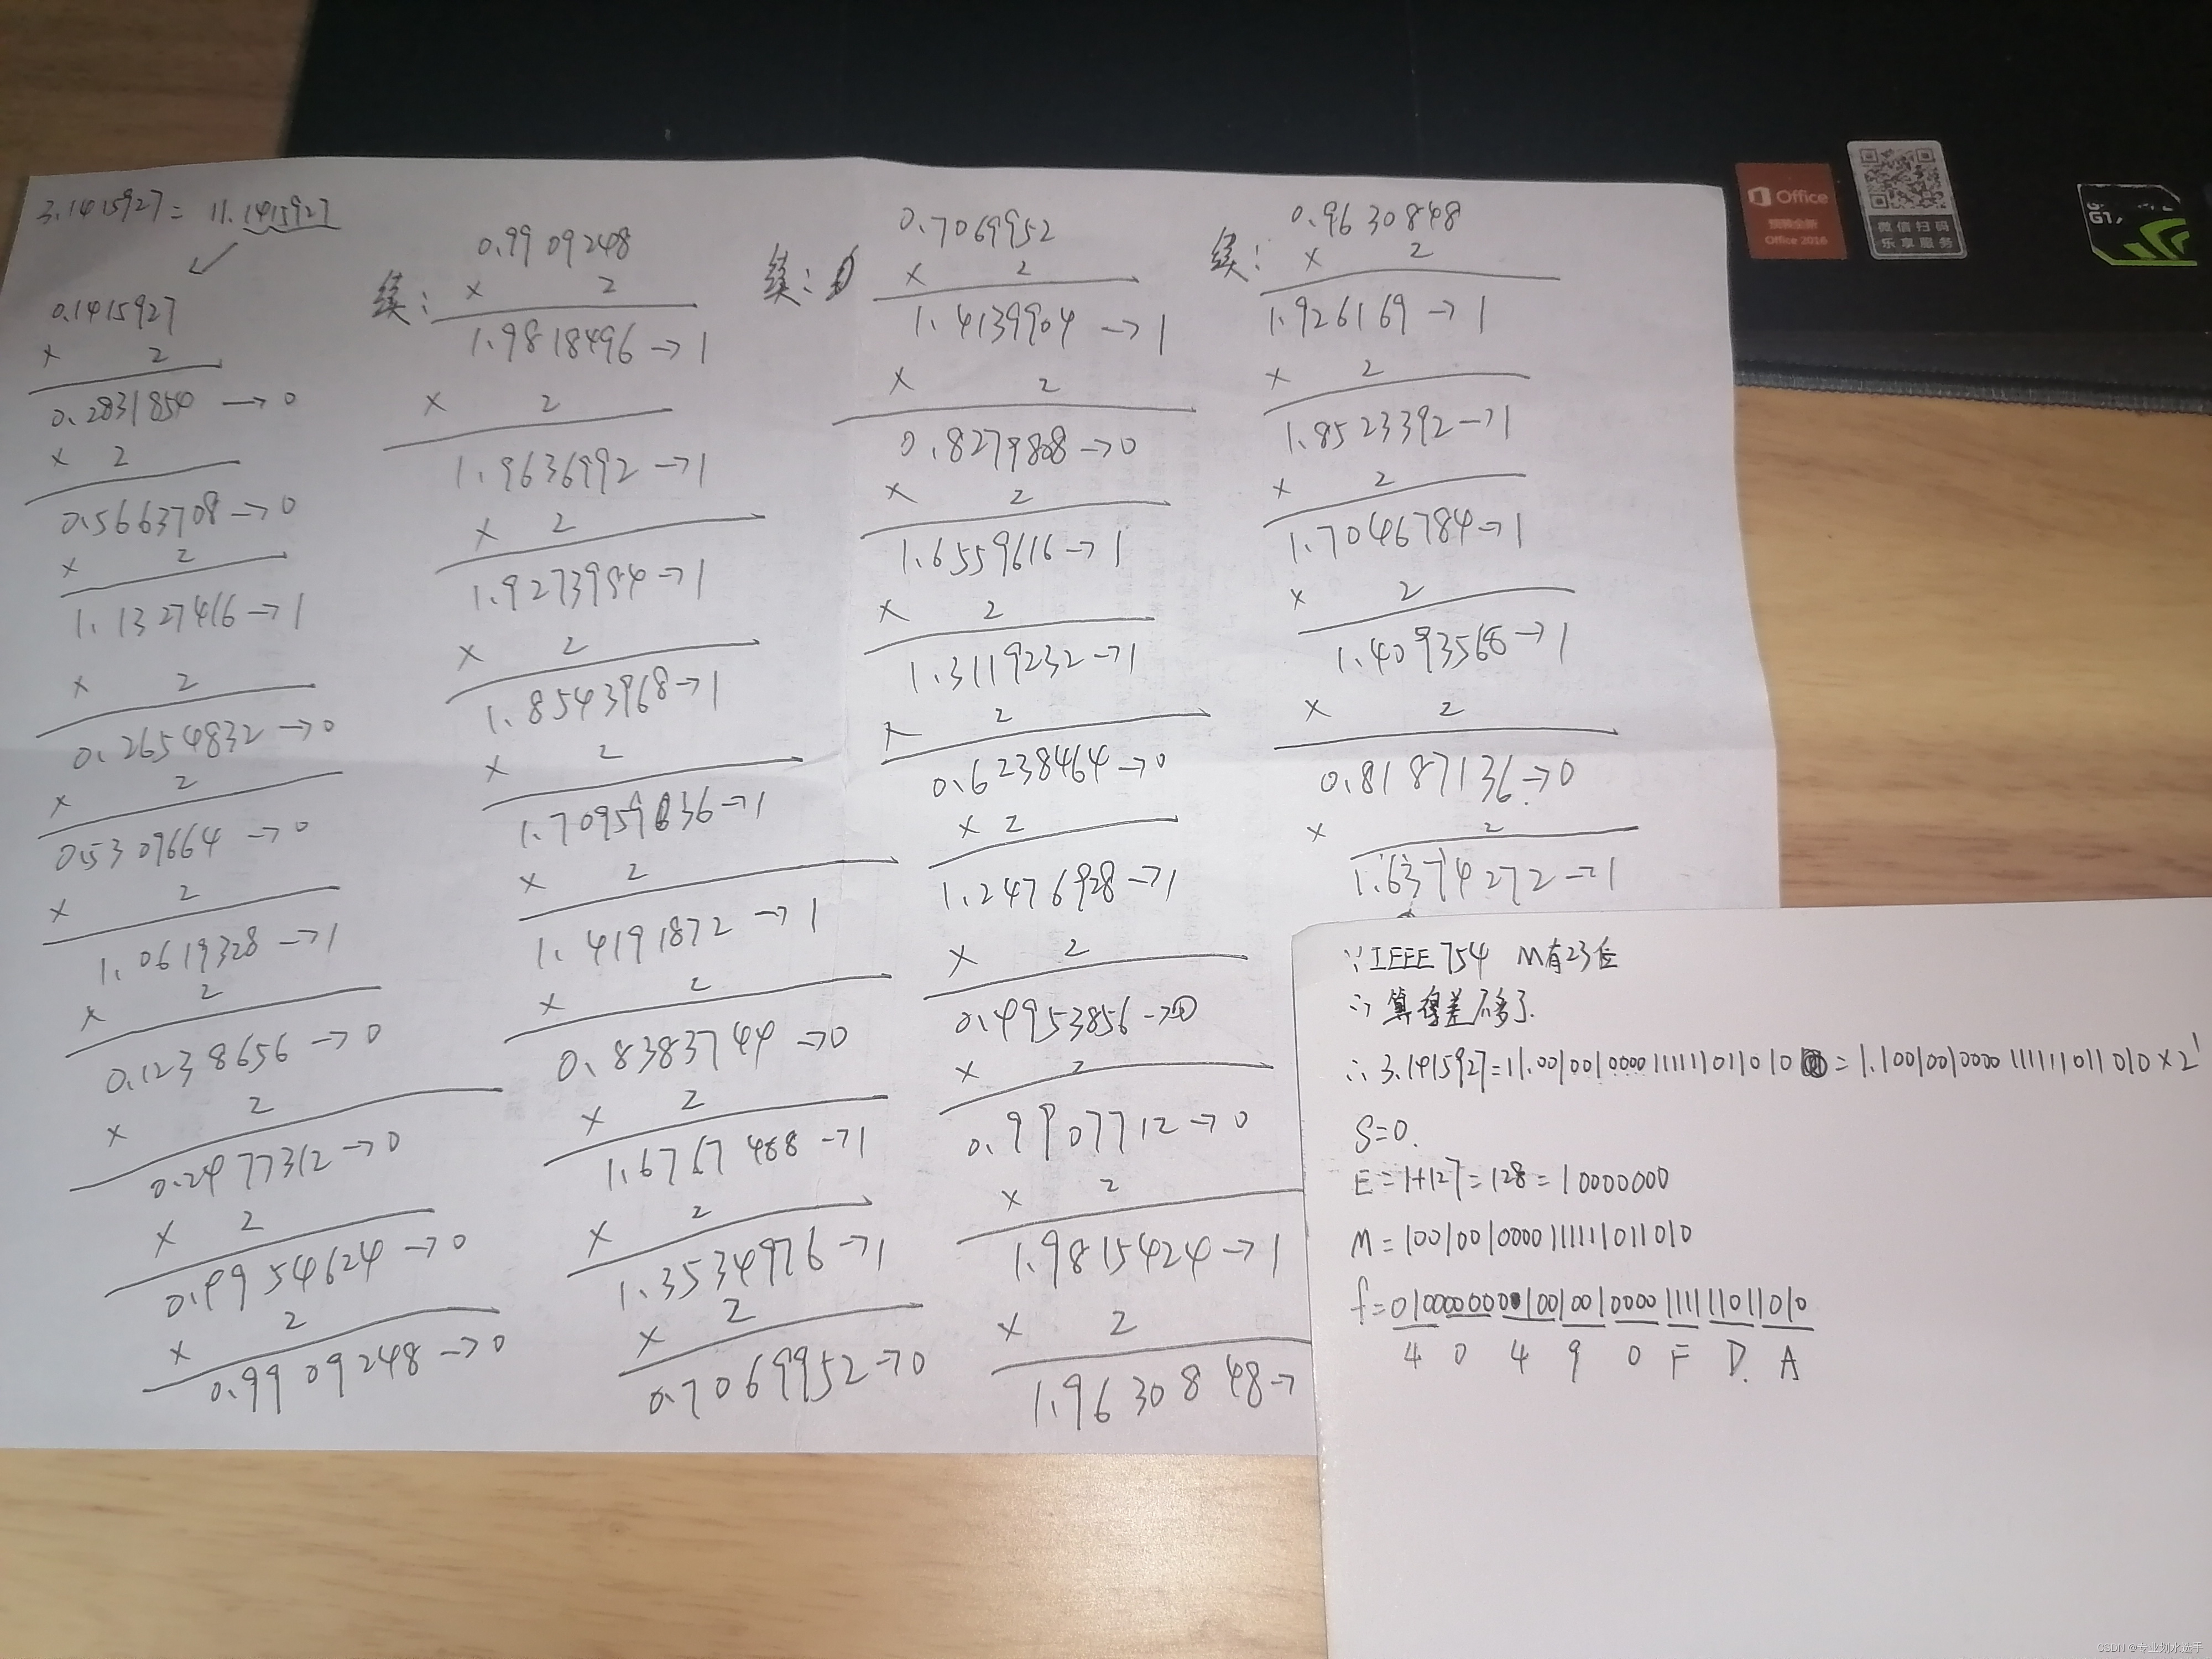 3.1415927 = 11.1415927
0.1415927
× 2
0.2831854 → 0
× 2
0.5663708 → 0
× 2
1.1327416 → 1
× 2
0.2654832 → 0
× 2
0.5309664 → 0
× 2
1.0619328 → 1
× 2
0.1238656 → 0
× 2
0.2477312 → 0
× 2
0.4954624 → 0
× 2
0.9909248 → 0
续:
0.9909248
× 2
1.9818496 → 1
× 2
1.9636992 → 1
× 2
1.9273984 → 1
× 2
1.8543968 → 1
× 2
1.7095936 → 1
× 2
1.4191872 → 1
× 2
0.8383744 → 0
× 2
1.6767488 → 1
× 2
1.3534976 → 1
× 2
0.7069952 → 0
续:
0.7069952
× 2
1.4139904 → 1
× 2
0.8279808 → 0
× 2
1.6559616 → 1
× 2
1.3119232 → 1
× 2
0.6238464 → 0
× 2
1.2476928 → 1
× 2
0.4953856 → 0
× 2
0.9907712 → 0
× 2
1.9815424 → 1
× 2
1.9630848 →
续:
0.9630848
× 2
1.926169 → 1
× 2
1.8523392 → 1
× 2
1.7046784 → 1
× 2
1.4093568 → 1
× 2
0.8187136 → 0
× 2
1.6374272 → 1
∵ IEEE 754 M有23位
∴ 算得差不多了.
∴ 3.1415927 = 11.0010010000111111011010 = 1.10010010000111111011010 × 2¹
S = 0.
E = 1+127 = 128 = 10000000
M = 10010010000111111011010
f = 01000000010010010000111111011010
4 0 4 9 0 F D A
Office
Office 2016
微信扫码
乐享服务
CSDN @专业划水选手